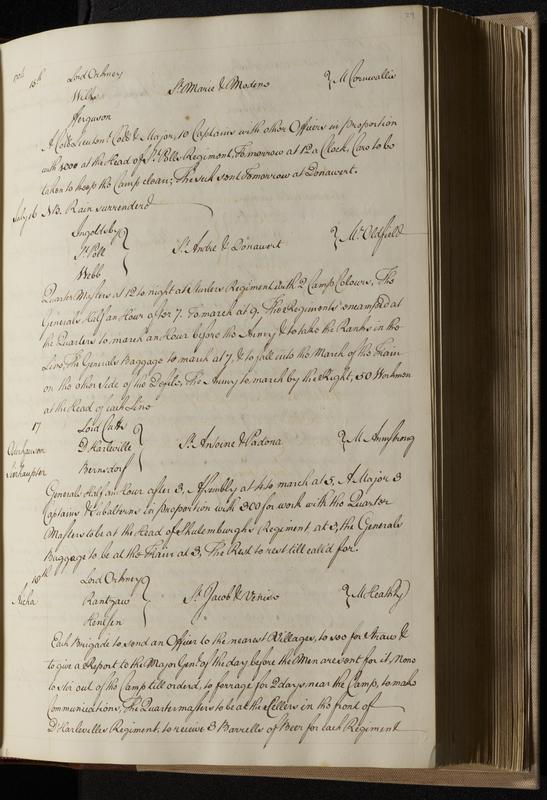 29
15th Lord Orkney
Wilks St Marie & Modene } M Cornwallis
Fferguson
A Coll: Lieutent Coll: & Major, 10 Captains with other Officers in Proportion
with 1000 at the Head of St Polls Regiment, Tomorrow at 12 a Clock, Care to be
taken to keep the Camp clean; The sick sent Tomorrow at Donawert.
July 16 NB. Rain surrenderd
Ingoldsby
St Poll St André & Donawert } Mr Oldfield
Webb
Quarter Masters at 12 to night at Sturlers Regiment with 2 Camp Colours, The
Generale Half an Hour after 7. To march at 9. The Regiments encamp'd at
the Quarters to march an Hour before the Army & to take the Ranks in the
Line, The Generals Baggage to march at 7, & to fall into the March of the Train
on the other Side of the Defile, The Army to march by the Right, 50 Workmen
at the Head of each Line
17 Lord Cutts
D'Harleville St Antoine & Padona } M Armstrong
Bernsdorf
Generale Half an Hour after 3, Assembly at 4 to march at 5, A Major 3
Captains & Subalterns in Proportion with 300 for work with the Quarter
Masters to be at the Head of Shulemburghs Regiment, at 3, the Generals
Baggage to be at the Train at 3, The Rest to rest till call'd for.
18th Lord Orkney
Aicha Rantzaw St Jacob & Venise } M Heathly
Hensen
Each Brigade to send an Officer to the nearest Villages, to see for Straw &
to give a Report to the Major Genl of the day before the Men are sent for it, None
to stir out of the Camp till orderd, to forrage for 2 days near the Camp, to make
Communications, The Quartermasters to be at the Cellers in the front of
D'Harlevilles Regiment, to receive 3 Barrells of Beer for each Regiment